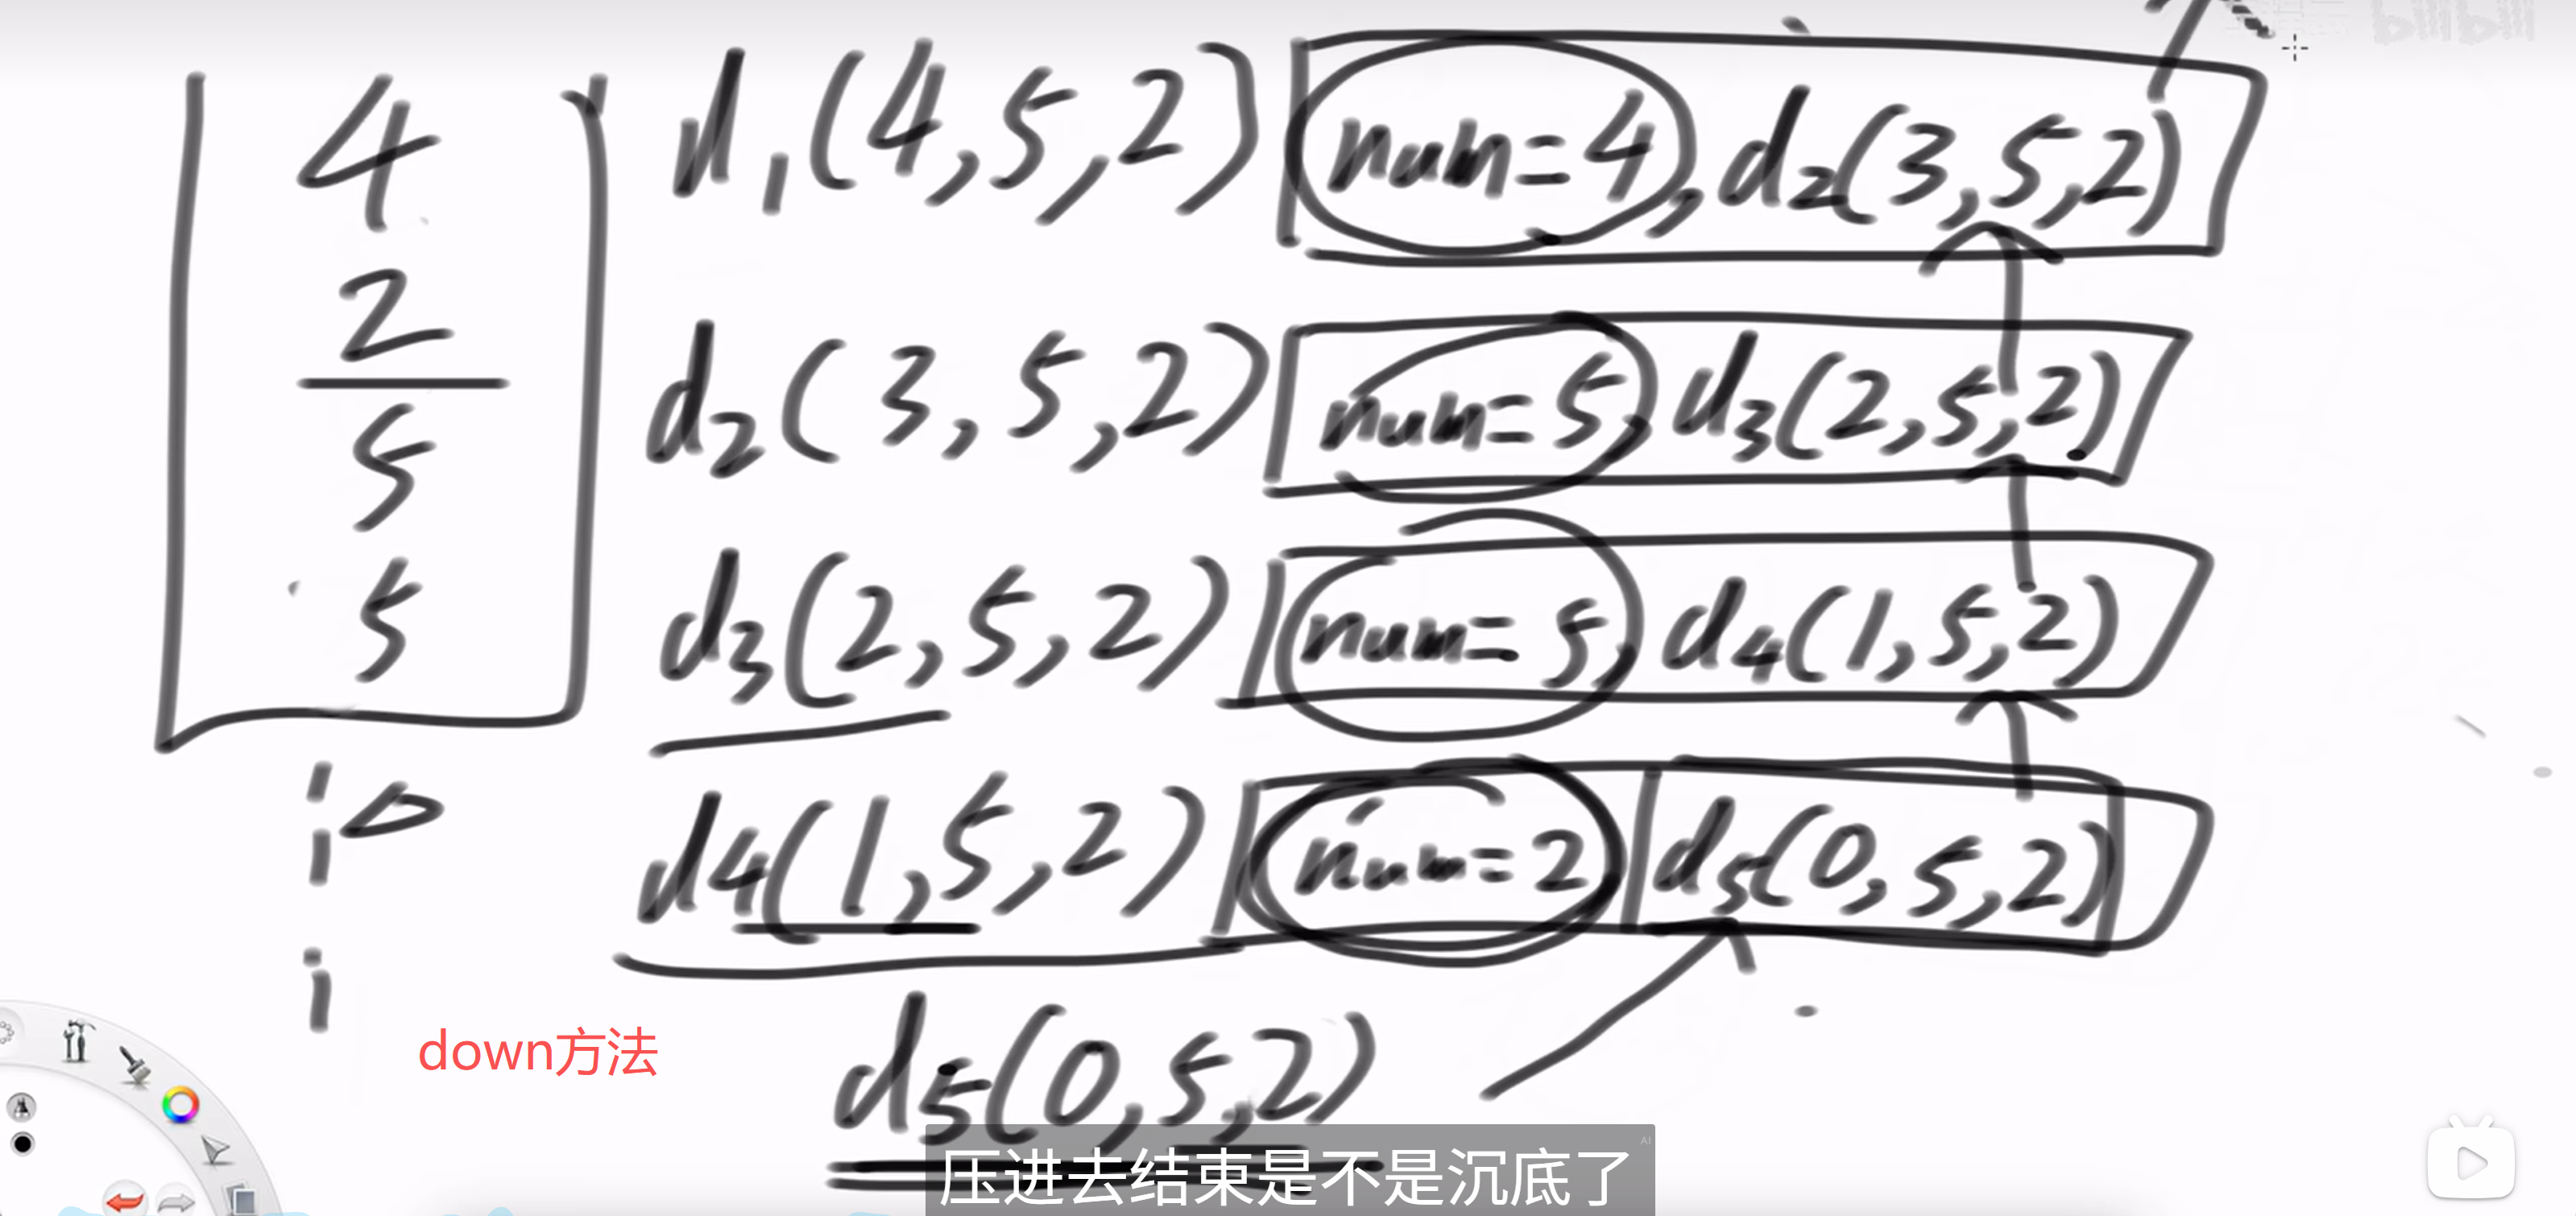 bilibili
4
2
5
5
d₁(4,5,2) num=4, d₂(3,5,2)
d₂(3,5,2) num=5, d₃(2,5,2)
d₃(2,5,2) num=5, d₄(1,5,2)
d4(1,5,2) num=2 d₅(0,5,2)
d₅(0,5,2)
down方法
AI
压进去结束是不是沉底了